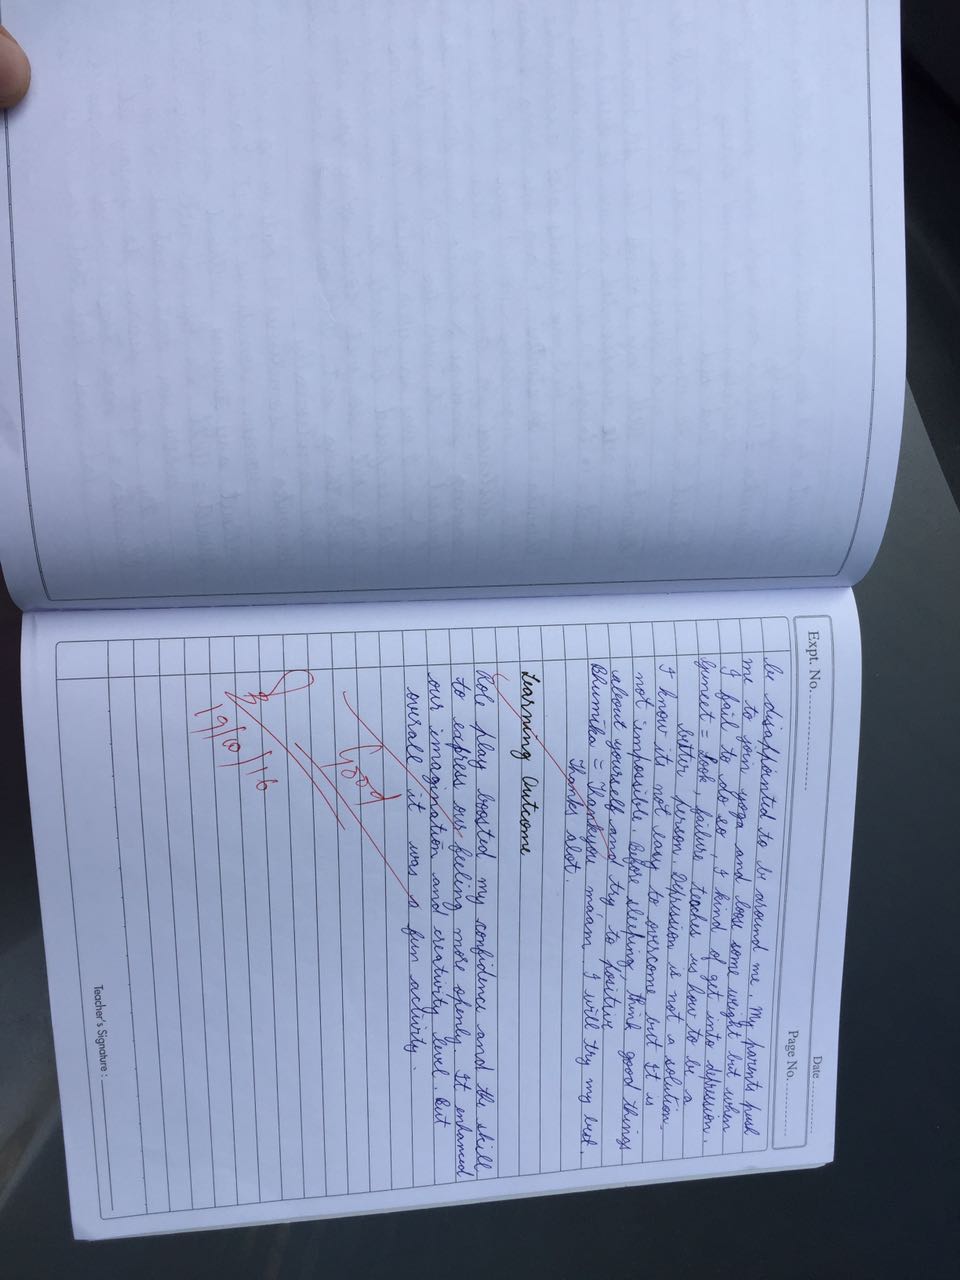 Expt. No.
Date
Page No.
be disappointed to be around me. My parents push
me to join yoga and loose some weight but when
I fail to do so, I kind of get into depression.
Guneet = Look, failure teaches us how to be a
better person. Depression is not a solution.
I know its not easy to overcome but It is
not impossible. Before sleeping, think good things
about yourself and try to positive
Bhumika = Thankyou ma'am. I will try my best.
Thanks alot.
Learning Outcome
Role play boosted my confidence and the skill
to express our feeling more openly. It enhanced
our imagination and creativity level. But
overall it was a fun activity.
Good
19/10/16
Teacher's Signature :